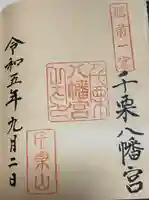 肥前一宮
千栗八幡宮
千栗山
令和五年九月二日